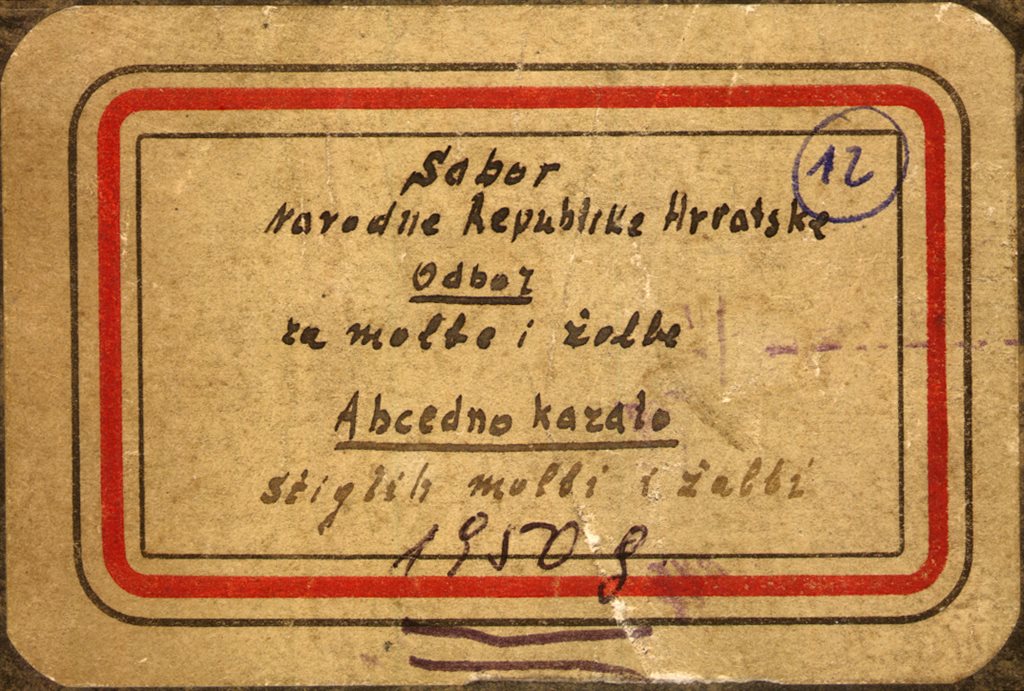 Sabor
12
Narodne Republike Hrvatske
Odbor
za molbe i žalbe
Abcedno kazalo
stiglih molbi i žalbi
1950 g.